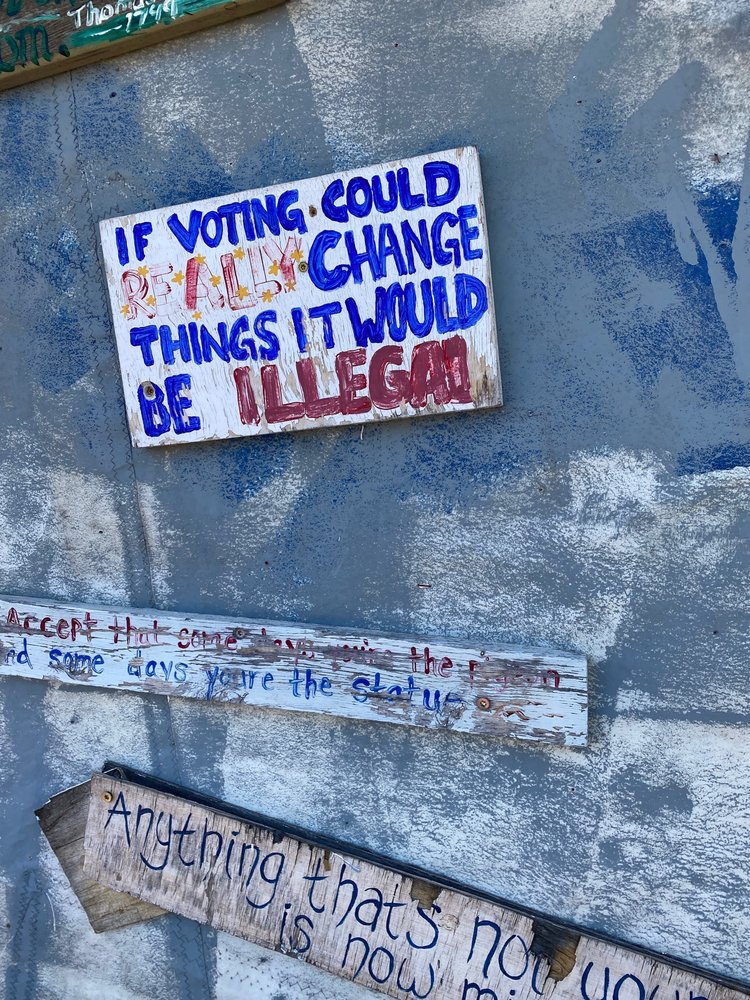 Thomas
1799
om.
IF VOTING COULD
REALLY CHANGE
THINGS IT WOULD
BE ILLEGAL
Accept that some days you're the pigeon
nd some days you're the statue
Anything thats not your
is now mi